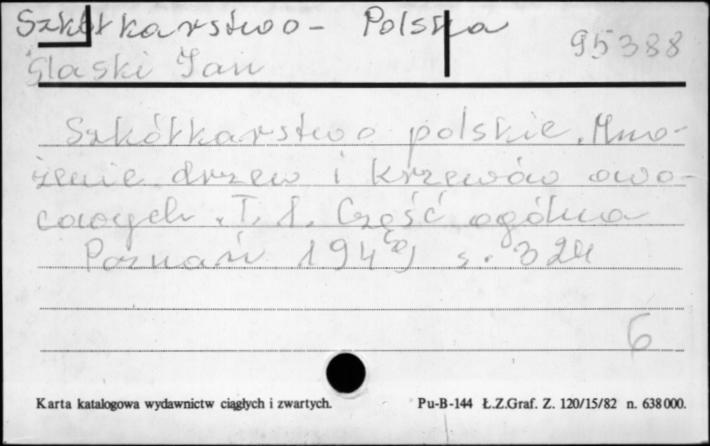 Szkółkarstwo - Polska
95388
Ślaski Jan
Szkółkarstwo polskie. Mno-
żenie drzew i krzewów owo-
cowych. T. 1. Część ogólna
Poznań s. 324
6
Karta katalogowa wydawnictw ciągłych i zwartych.
Pu-B-144 Ł.Z.Graf. Z. 120/15/82 n. 638000.